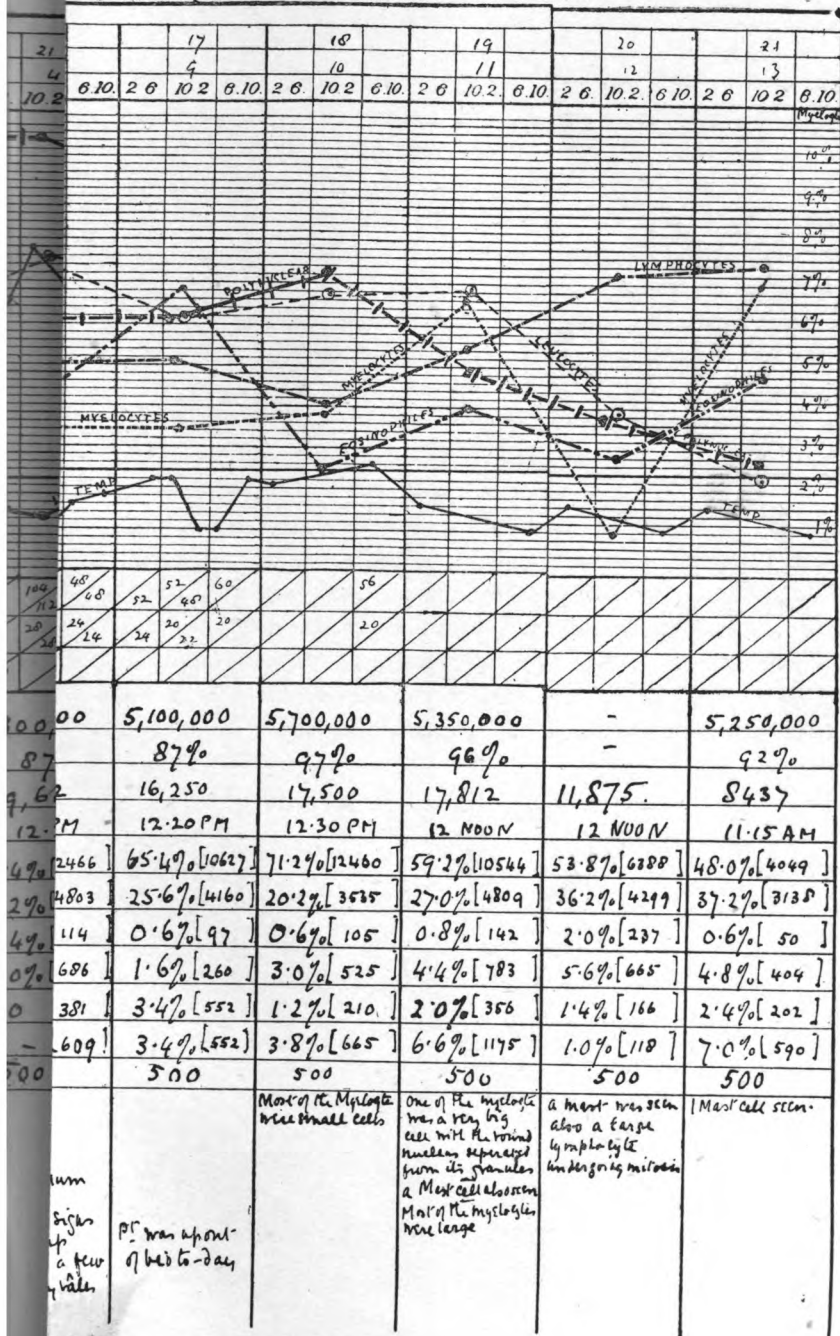 21 17 18 19 20 21
4 9 10 11 12 13
10.2 6.10. 2 6 10 2 6.10. 2 6. 10.2. 6.10. 2 6 10.2. 6.10. 2 6. 10.2. 6 10. 2 6 10 2 6.10.
10%
9.%
8%
LYMPHOCYTES
POLYNUCLEAR
7%
6%
LEUCOCYTES
MYELOCYTES
MYELOCYTES
5%
EOSINOPHILES
4%
MYELOCYTES
EOSINOPHILES
3%
2%
TEMP
TEMP
1%
104 48 52 60 56
112 48 52 48
28 24 20 20 20
24 24 22
00,00 5,100,000 5,700,000 5,350,000 - 5,250,000
87 87% 97% 96% - 92%
9,62 16,250 17,500 17,812 11,875. 8437
12. PM 12.20 PM 12.30 PM 12 NOON 12 NOON 11.15 AM
4% 2466] 65.4% [10627] 71.2% [12460] 59.2% [10544] 53.8% [6388] 48.0% [4049]
2% 4803] 25.6% [4160] 20.2% [3535] 27.0% [4809] 36.2% [4299] 37.2% [3138]
4% 114] 0.6% [97] 0.6% [105] 0.8% [142] 2.0% [237] 0.6% [50]
0% 686] 1.6% [260] 3.0% [525] 4.4% [783] 5.6% [665] 4.8% [404]
0 381] 3.4% [552] 1.2% [210] 2.0% [356] 1.4% [166] 2.4% [202]
- 609] 3.4% [552] 3.8% [665] 6.6% [1175] 1.0% [118] 7.0% [590]
500 500 500 500 500 500
Signs
a few
râles
Pt. was up out
of bed to-day
Most of the Myelocytes
were small cells
One of the myelocytes
was a very big
cell with the round
nucleus seperated
from its granules
a Mast cell also seen
Most of the myelocytes
were large
a mast was seen
also a large
lymphocyte
undergoing mitosis
1 Mast cell seen.